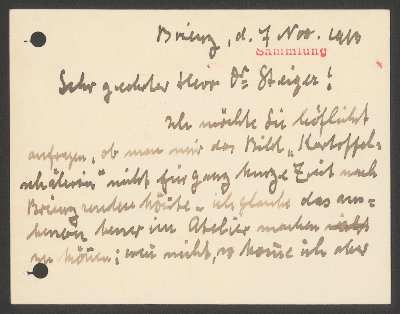 Brienz, d. 7 Nov. 1910
Sammlung
Sehr geehrter Herr Dr. Steiger!
Ich möchte Sie höflichst
anfragen, ob man mir das Bild „Kartoffel=
schälerin" nicht für ganz kurze Zeit nach
Brienz senden könnte – ich glaube das
besser im Atelier machen nicht
zu können; wenn nicht, so könne ich aber